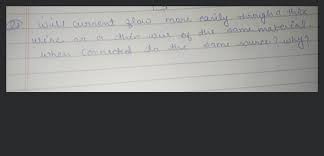 Will current flow more easily through a thick
wire or a thin wire of the same material,
when connected to the same source? why?